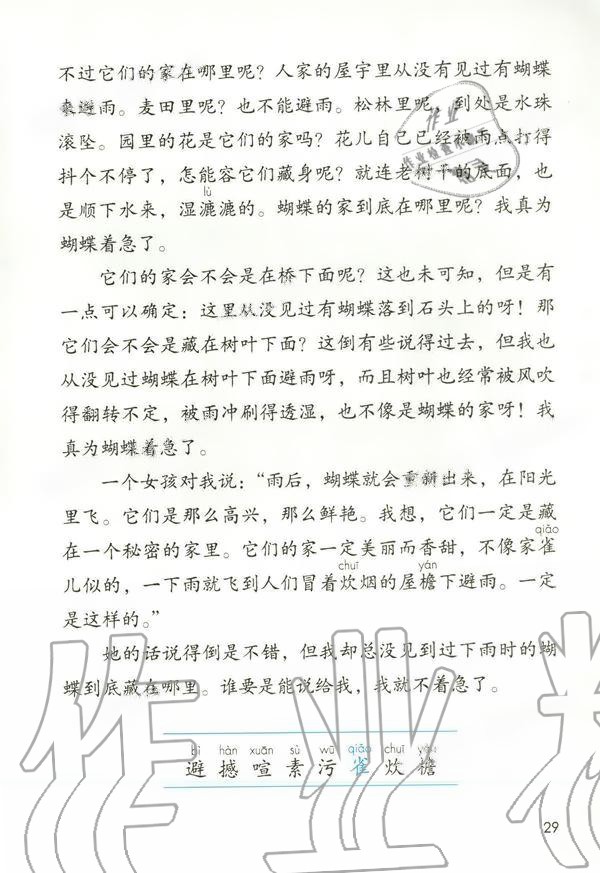 不过它们的家在哪里呢？人家的屋宇里从没有见过有蝴蝶
来避雨。麦田里呢？也不能避雨。松林里呢，到处是水珠
滚坠。园里的花是它们的家吗？花儿自己已经被雨点打得
抖个不停了，怎能容它们藏身呢？就连老树干的底面，也
lù
是顺下水来，湿漉漉的。蝴蝶的家到底在哪里呢？我真为
蝴蝶着急了。
它们的家会不会是在桥下面呢？这也未可知，但是有
一点可以确定：这里从没见过有蝴蝶落到石头上的呀！那
它们会不会是藏在树叶下面？这倒有些说得过去，但我也
从没见过蝴蝶在树叶下面避雨呀，而且树叶也经常被风吹
得翻转不定，被雨冲刷得透湿，也不像是蝴蝶的家呀！我
真为蝴蝶着急了。
一个女孩对我说：“雨后，蝴蝶就会重新出来，在阳光
里飞。它们是那么高兴，那么鲜艳。我想，它们一定是藏
qiǎo
在一个秘密的家里。它们的家一定美丽而香甜，不像家雀
chuī yán
儿似的，一下雨就飞到人们冒着炊烟的屋檐下避雨。一定
是这样的。”
她的话说得倒是不错，但我却总没见到过下雨时的蝴
蝶到底藏在哪里。谁要是能说给我，我就不着急了。
bì hàn xuān sù wū qiǎo chuī yán
避 撼 喧 素 污 雀 炊 檐
29
作业